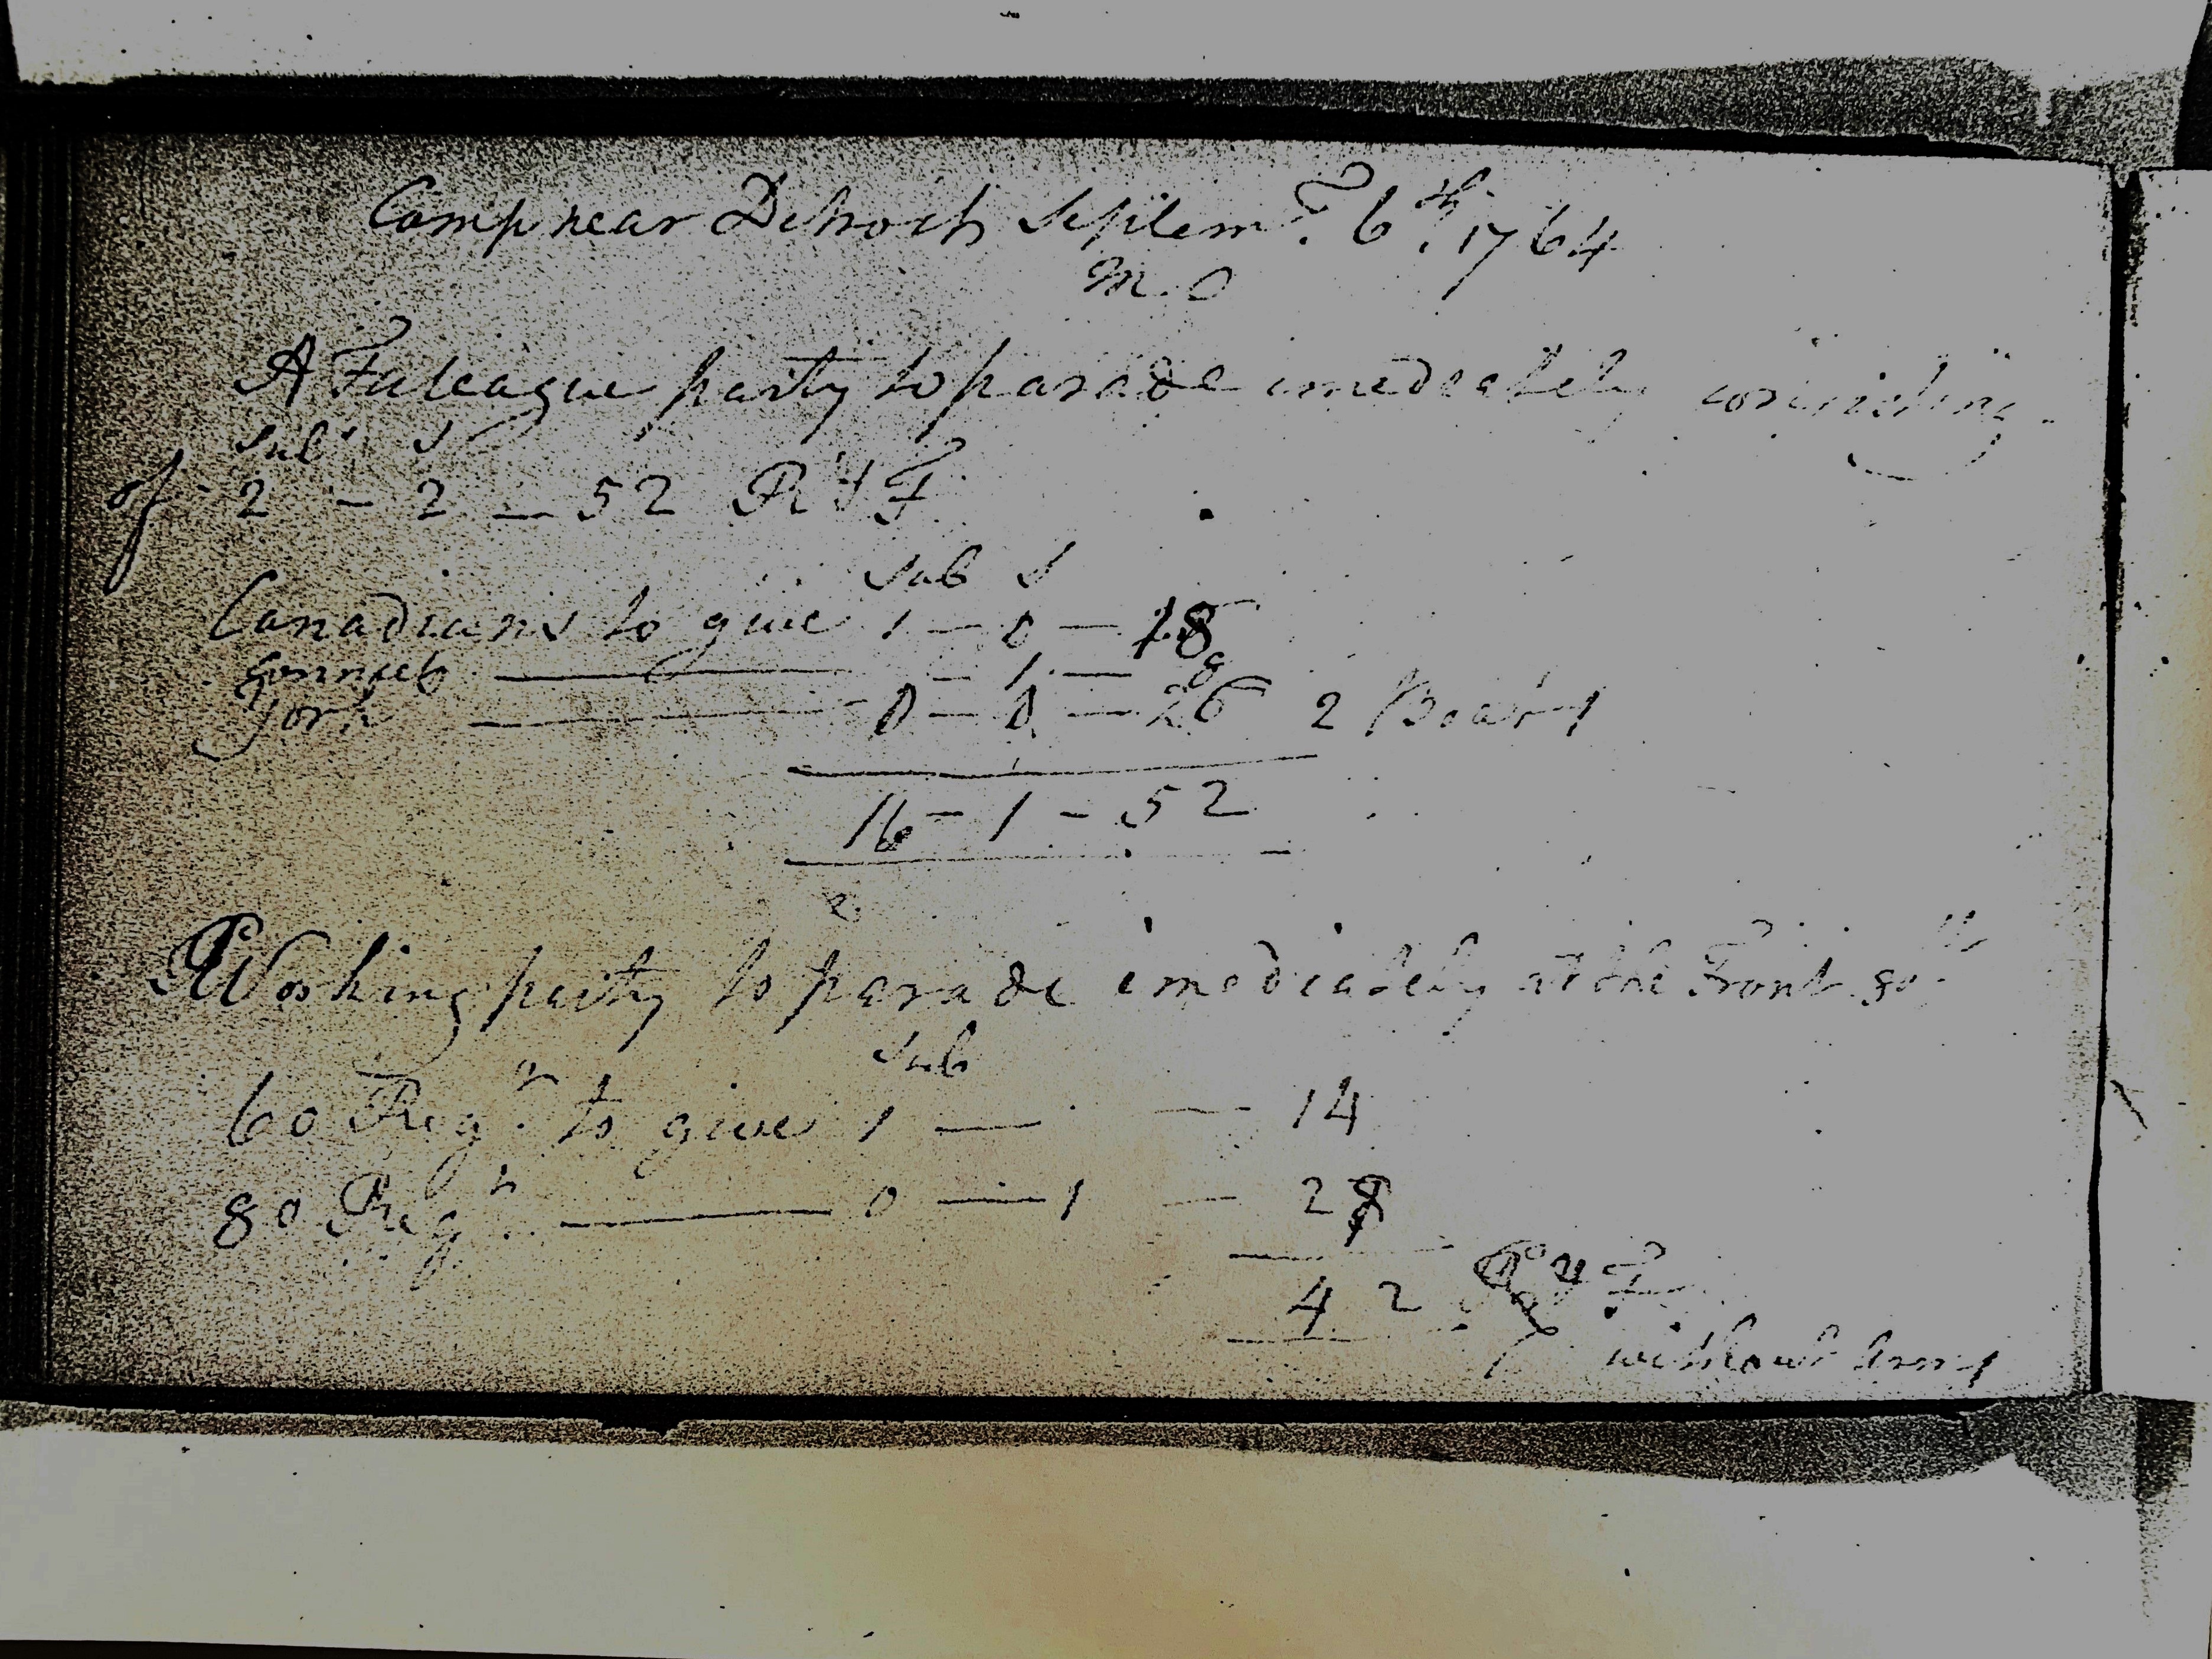 Camp near Detroit Septemr. 6th. 1764
M. O
A Futeague party to parade imediately consisting
of Subs 2 - S 2 - 52 R & F
Sub S
Canadians to give 1 - 0 - 18
Connect - 1 - 8
York 0 - 0 - 26 2 Boats
16 - 1 - 52
A Working party to parade imediately at the Front 80th
Sub
60 Regt. to give 1 - 14
80 Regt. 0 - 1 - 28
42 R & F
without Arms